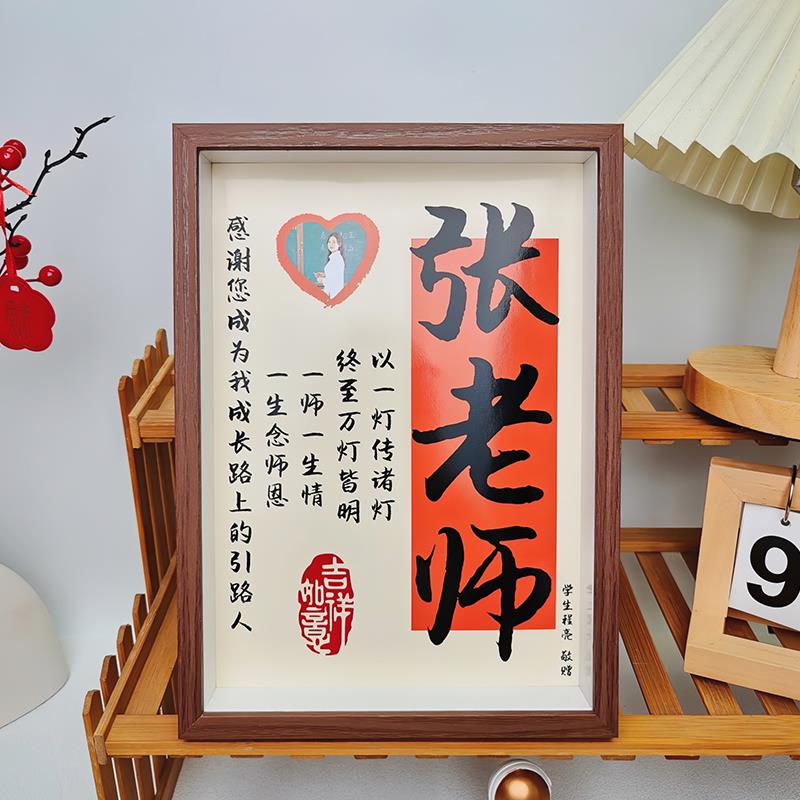 张老师
学生程亮 敬赠
以一灯传诸灯
终至万灯皆明
一师一生情
一生念师恩
吉祥如意
感谢您成为我成长路上的引路人
9